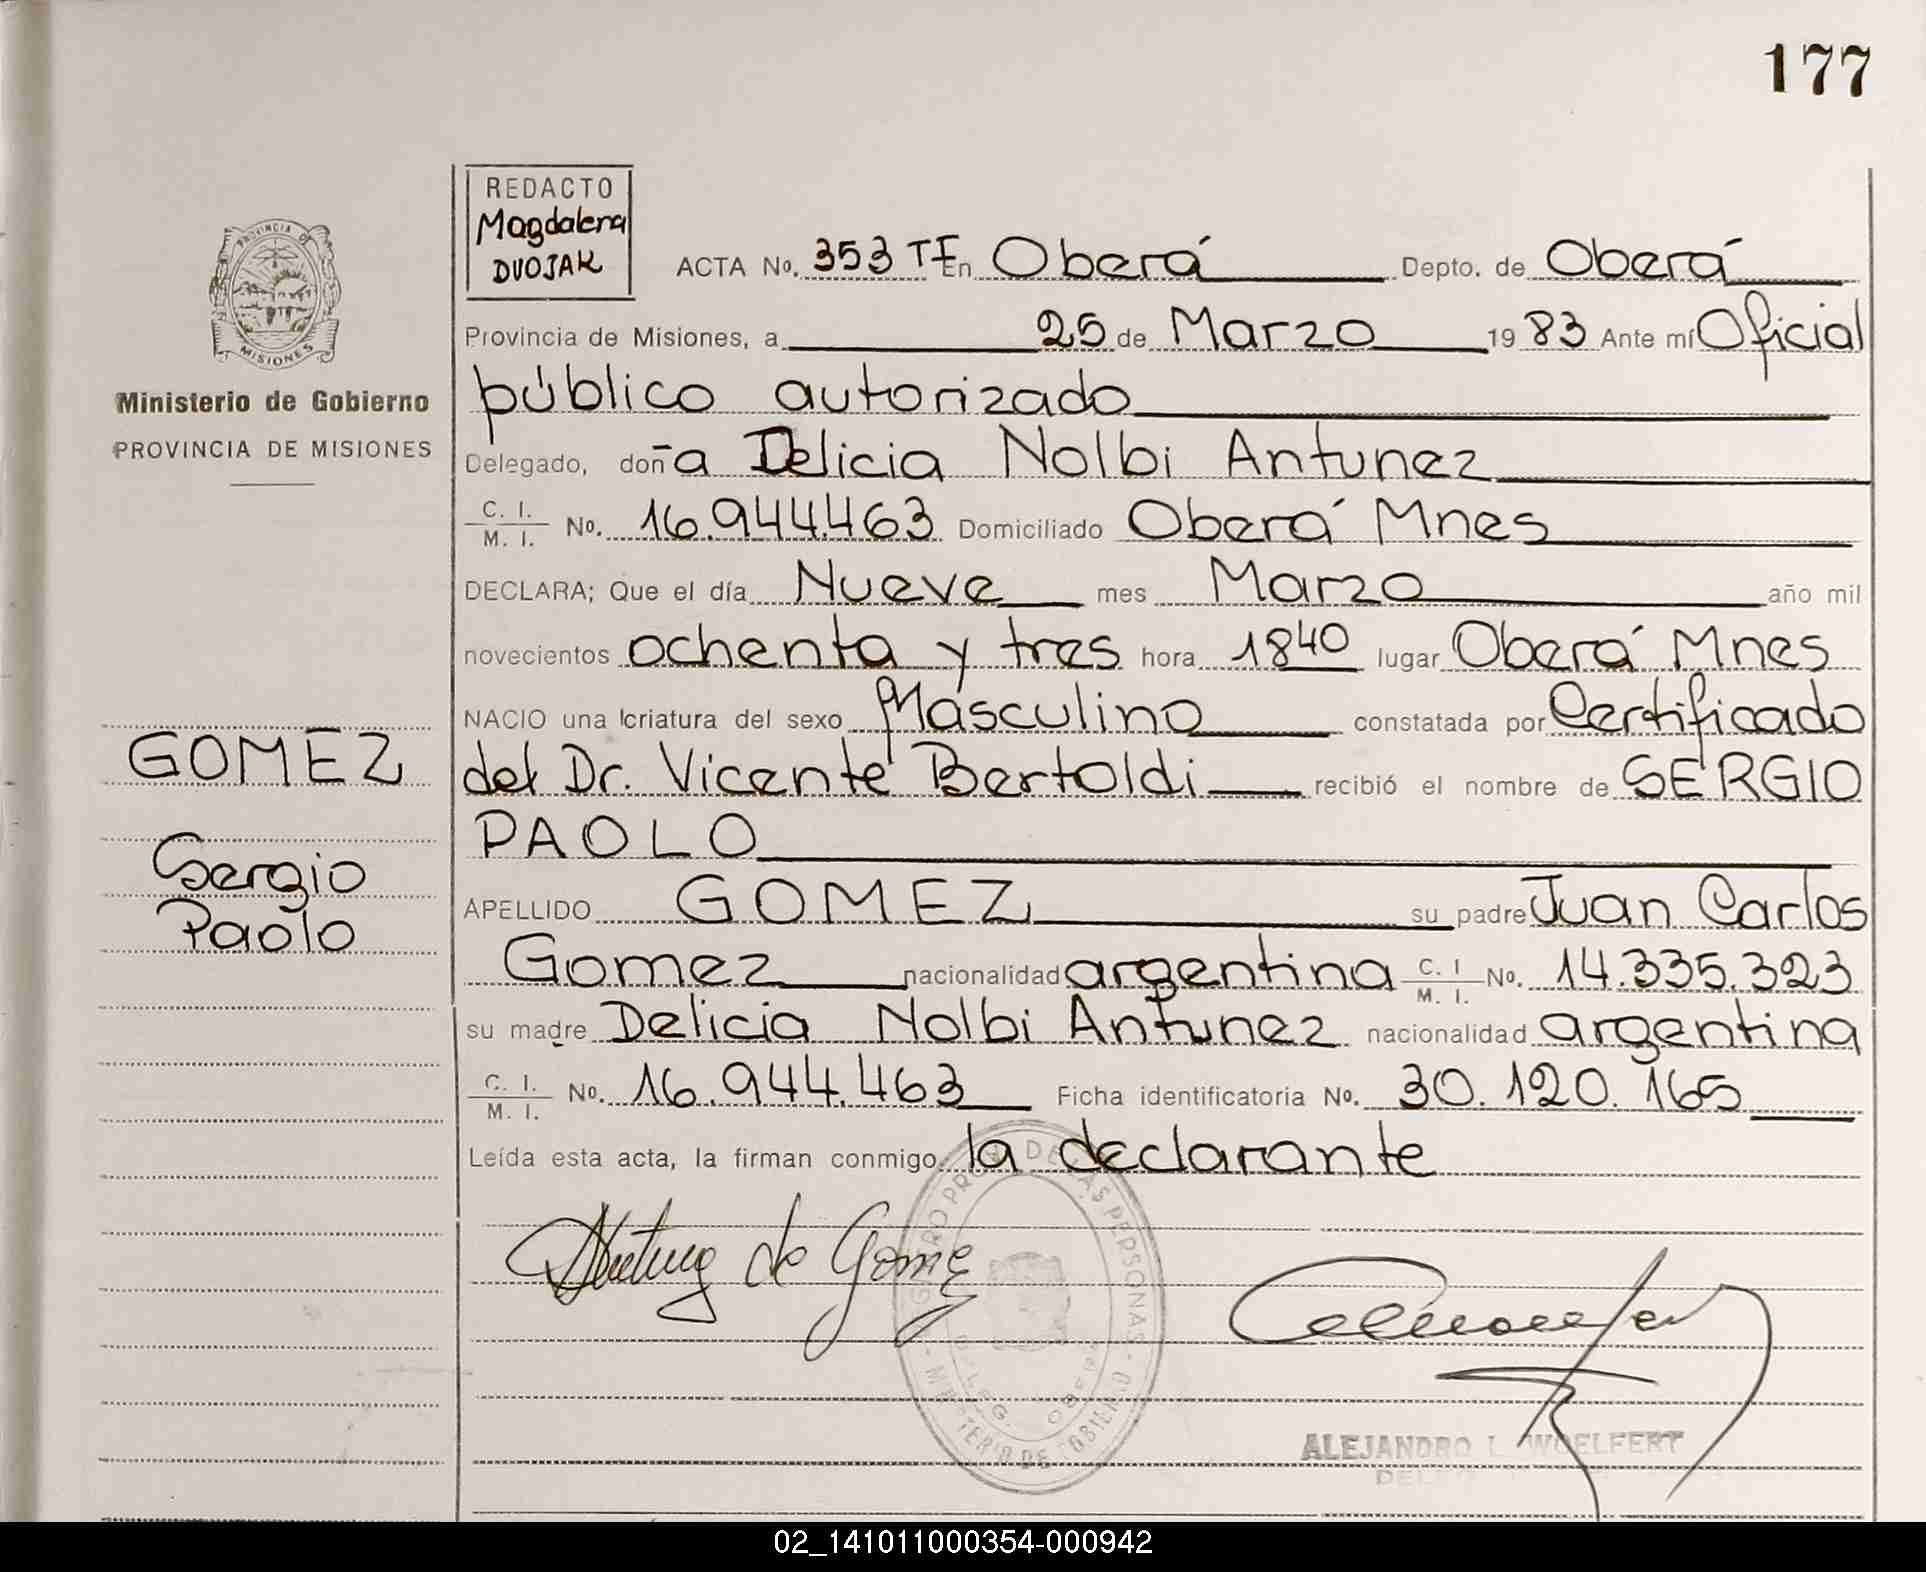 177
REDACTO
Magdalena
DVOJAK
PROVINCIA DE
MISIONES
Ministerio de Gobierno
PROVINCIA DE MISIONES
ACTA No. 353 TE En Oberá Depto. de Oberá
Provincia de Misiones, a 25 de Marzo 1983 Ante mí Oficial
público autorizado
Delegado, doña Delicia Nolbi Antunez
C. I.
M. I. No. 16.944.463 Domiciliado Oberá Mnes
DECLARA; Que el día Nueve mes Marzo año mil
novecientos ochenta y tres hora 18 40 lugar Oberá Mnes
NACIO una criatura del sexo Másculino constatada por Certificado
del Dr. Vicente Bertoldi recibió el nombre de SERGIO
PAOLO
GOMEZ
Sergio
Paolo
APELLIDO GOMEZ su padre Juan Carlos
Gomez nacionalidad argentina C. I M. I. No. 14.335.323
su madre Delicia Nolbi Antunez nacionalidad argentina
C. I.
M. I. No. 16.944.463 Ficha identificatoria No. 30.120.165
Leída esta acta, la firman conmigo la declarante
de Gomez
ALEJANDRO L. WOELFERT
02_141011000354-000942